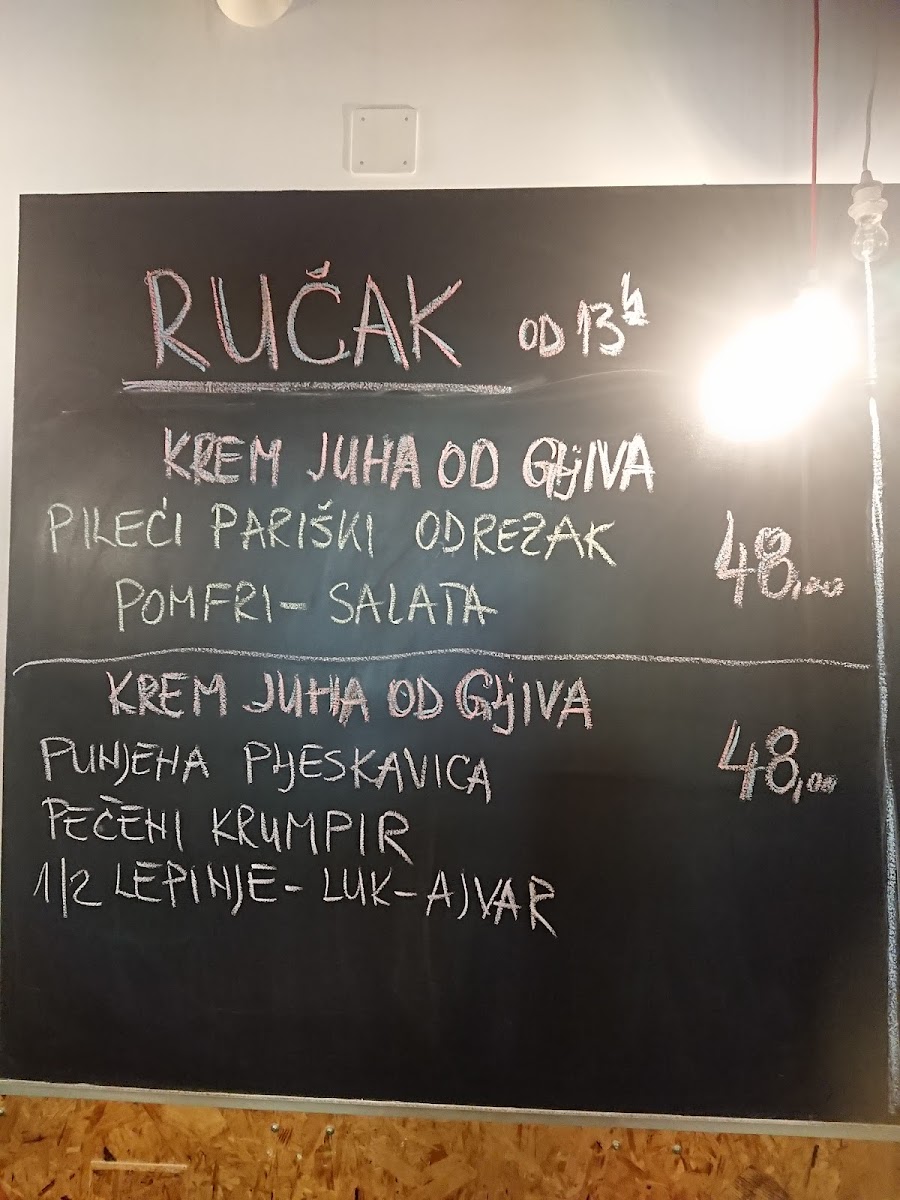 RUČAK OD 13h
KREM JUHA OD GljIVA
PILEĆI PARIŠKI ODREZAK 48,00
POMFRI- SALATA
KREM JUHA OD GljIVA
PUNJENA PljESKAVICA 48,00
PEČENI KRUMPIR
1/2 LEPINJE- LUK-AJVAR